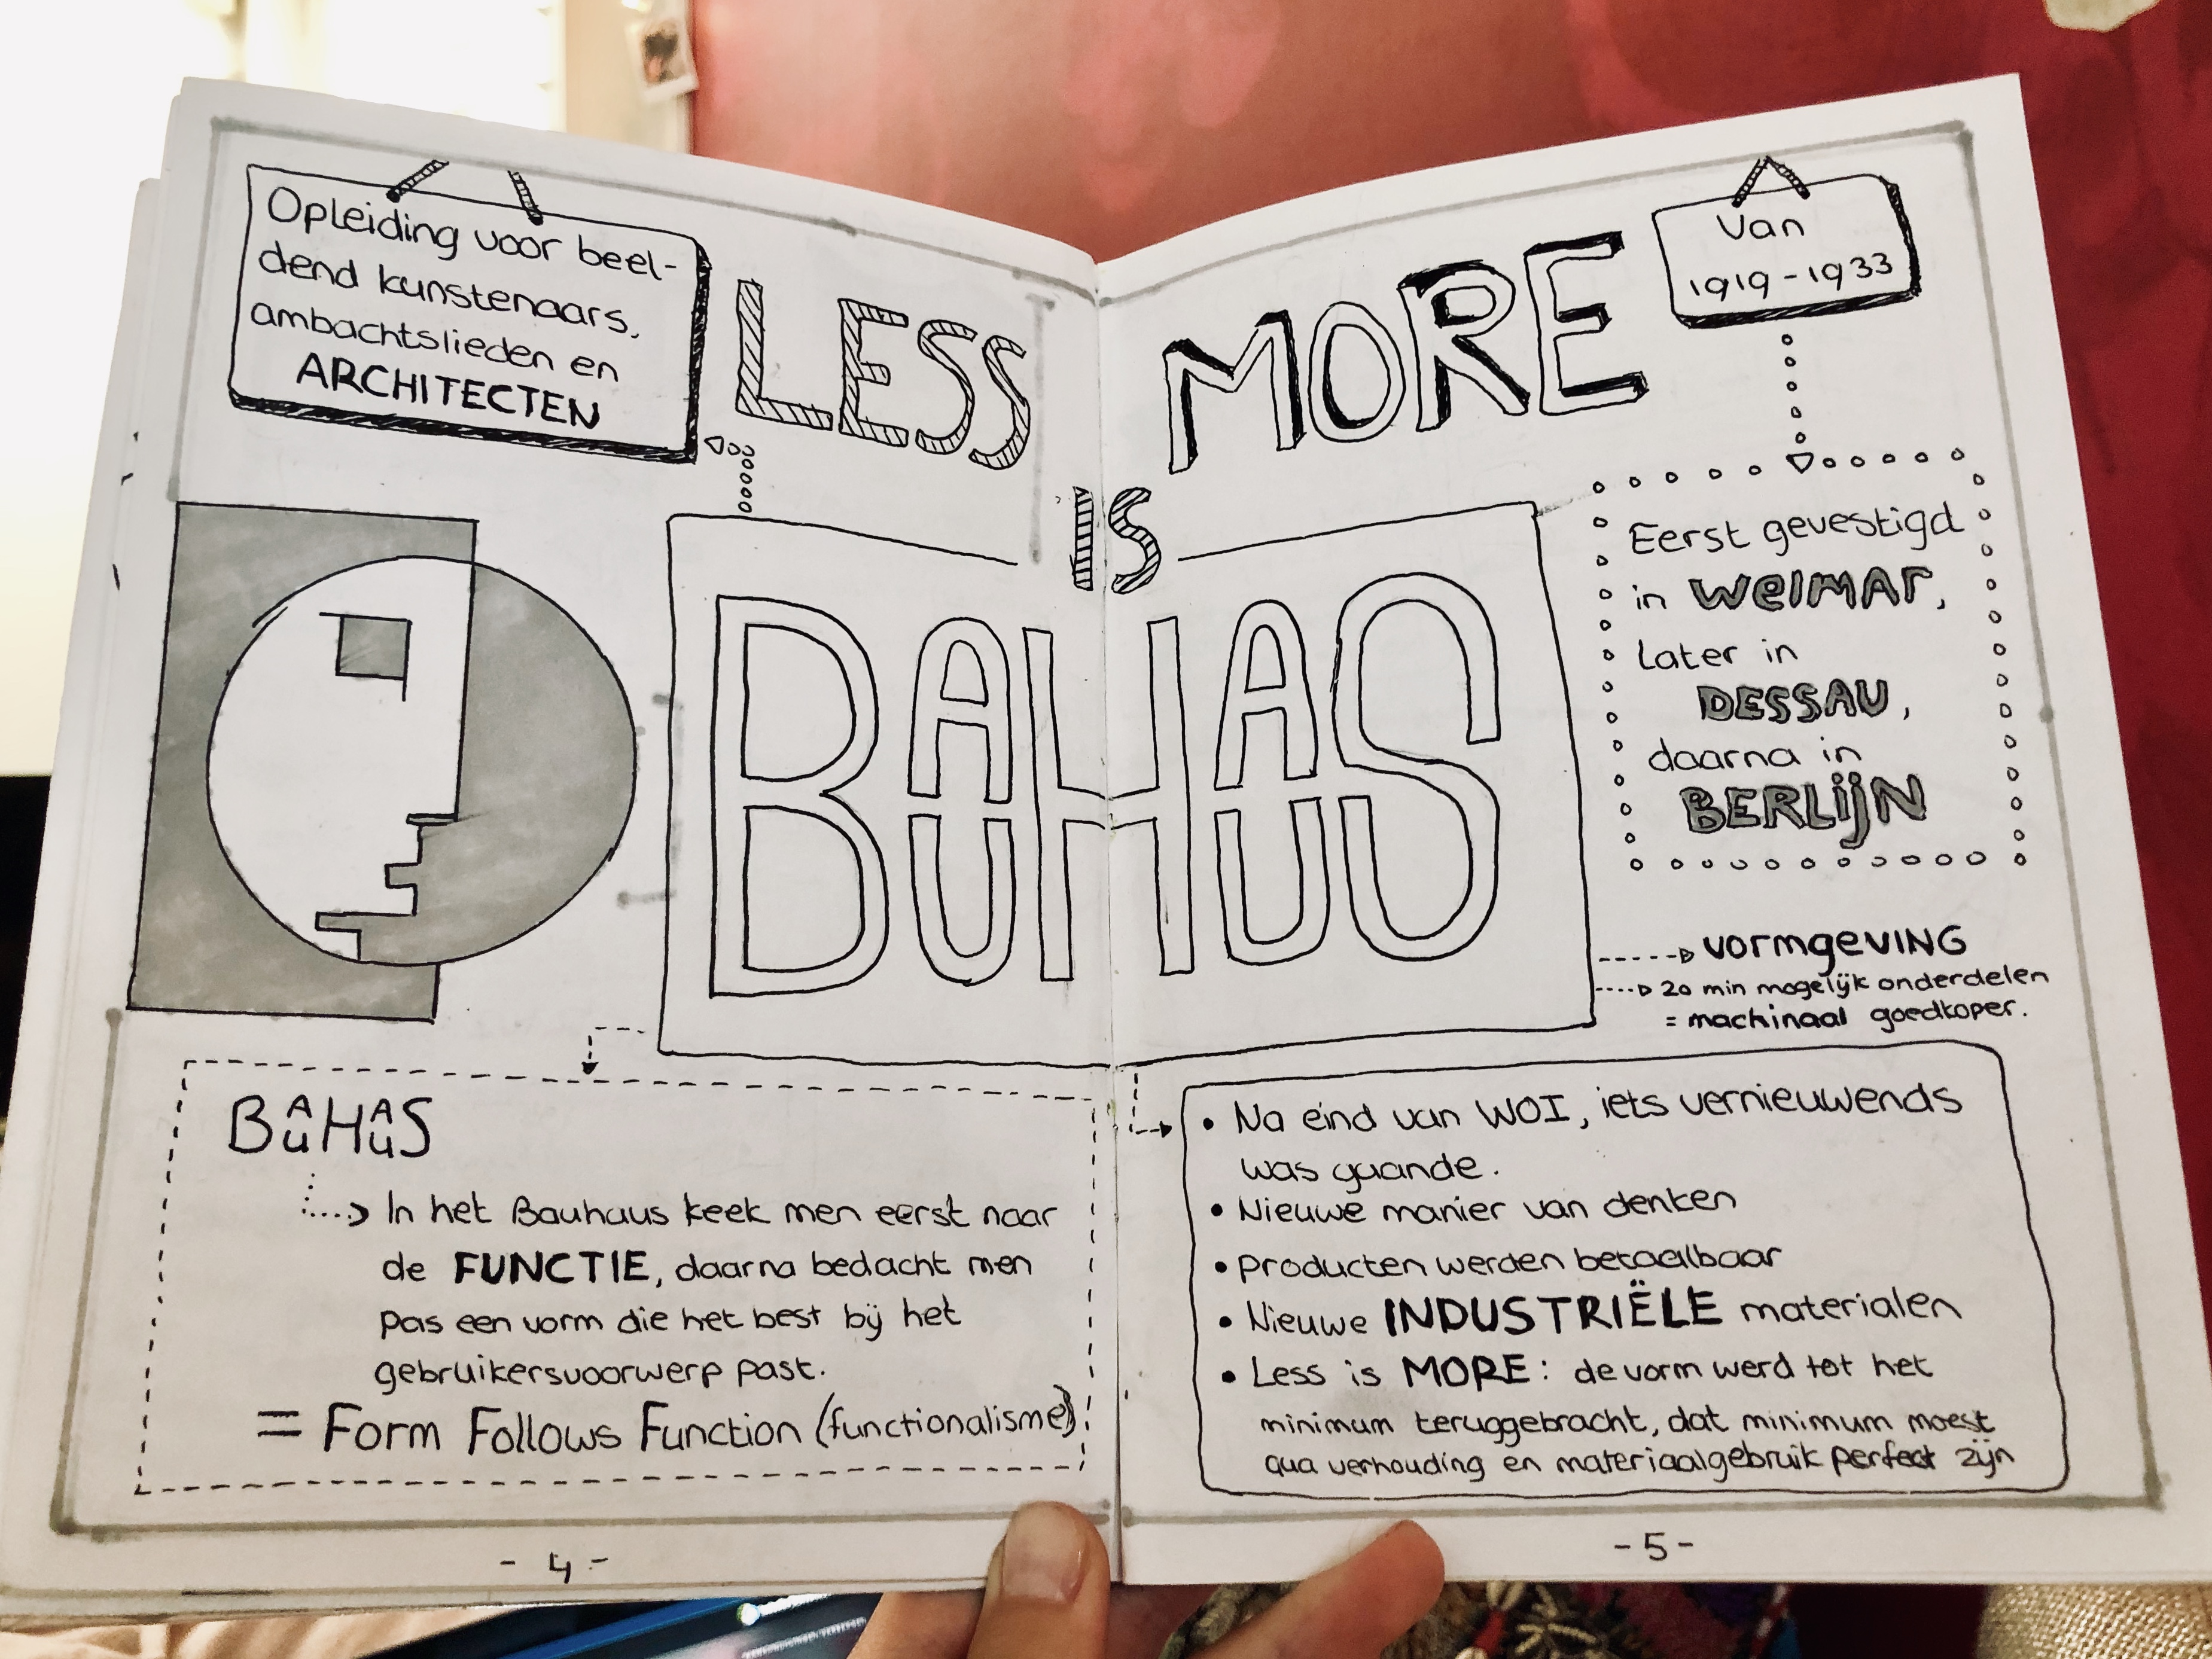 Opleiding voor beel-
dend kunstenaars,
ambachtslieden en
ARCHITECTEN
LESS
IS
MORE
Van
1919-1933
BAUHAUS
Eerst gevestigd
in WeIMAr,
Later in
DESSAU,
daarna in
BERLIJN
vormgeVING
20 min mogelijk onderdelen
= machinaal goedkoper.
BAUHAUS
In het Bauhaus keek men eerst naar
de FUNCTIE, daarna bedacht men
pas een vorm die het best bij het
gebruikersvoorwerp past.
= Form Follows Function (functionalisme)
• Na eind van WOI, iets vernieuwends
was gaande.
• Nieuwe manier van denken
• Producten werden betaalbaar
• Nieuwe INDUSTRIËLE materialen
• Less is MORE: de vorm werd tot het
minimum teruggebracht, dat minimum moest
qua verhouding en materiaalgebruik perfect zijn
- 4 -
- 5 -